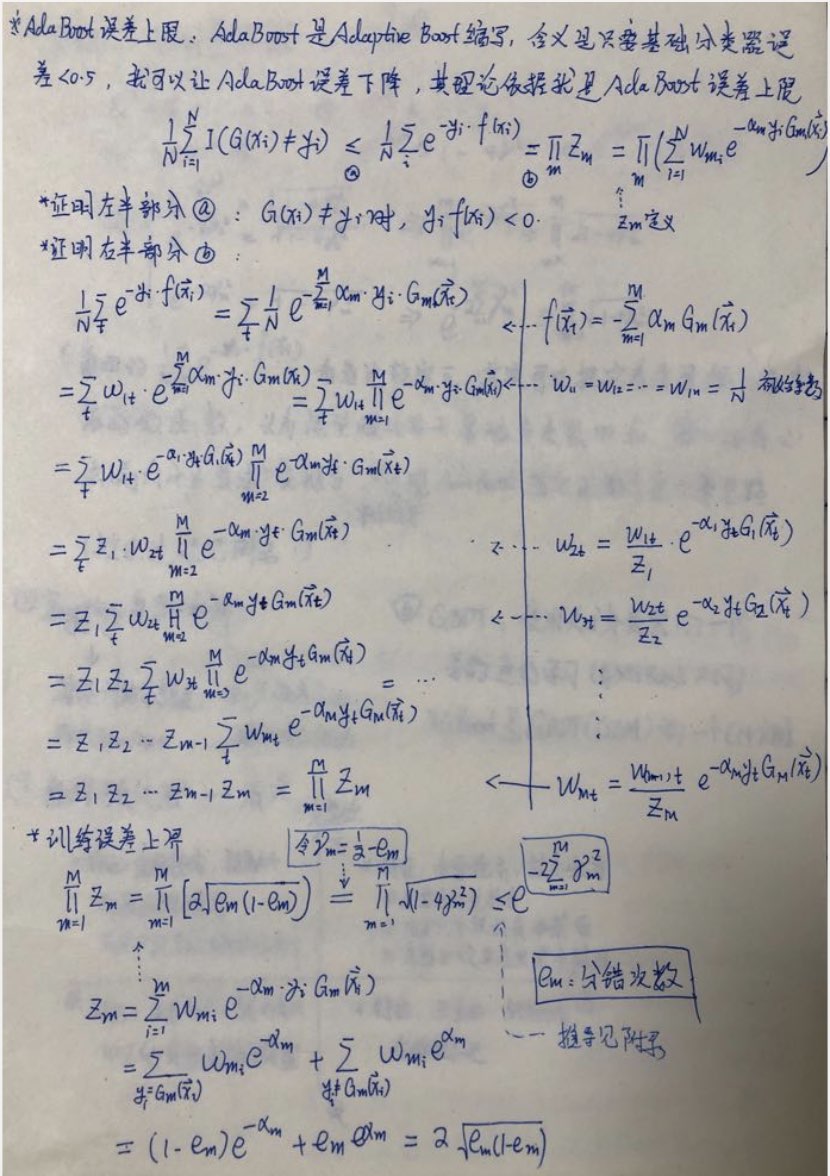 *AdaBoost误差上限：AdaBoost是Adaptive Boost缩写，含义是只要基础分类器误
差<0.5，就可以让AdaBoost误差下降，其理论依据就是AdaBoost误差上限
\frac{1}{N}\sum_{i=1}^{N} I(G(x_i)≠y_i) ≤ⓐ \frac{1}{N}\sum_i e^{-y_i·f(x_i)} =ⓑ \prod_m Z_m = \prod_m (\sum_{i=1}^{N} w_{mi} e^{-α_m y_i G_m(\vec{x_i})})
Z_m定义
*证明左半部分ⓐ：G(x_i)≠y_i时，y_i f(x_i)<0.
*证明右半部分ⓑ：
\frac{1}{N}\sum_t e^{-y_i·f(\vec{x_i})} = \sum_t \frac{1}{N} e^{-\sum_{m=1}^{M} α_m·y_i·G_m(\vec{x_t})} <---- f(\vec{x_i}) = -\sum_{m=1}^{M} α_m G_m(\vec{x_i})
= \sum_t w_{1t}·e^{-\sum_{m=1}^{M} α_m·y_i·G_m(x_i)} = \sum_t w_{1t} \prod_{m=1}^{M} e^{-α_m·y_i·G_m(\vec{x_i})} <---- w_{11}=w_{12}=…=w_{1n}=\frac{1}{N}
= \sum_t w_{1t}·e^{-α_1·y_t G_1(\vec{x_t})} \prod_{m=2}^{M} e^{-α_m y_t·G_m(\vec{x_t})}
= \sum_t Z_1·w_{2t} \prod_{m=2}^{M} e^{-α_m·y_t·G_m(\vec{x_t})} <---- w_{2t} = \frac{w_{1t}}{Z_1}·e^{-α_1 y_t G_1(\vec{x_t})}
= Z_1 \sum_t w_{2t} \prod_{m=2}^{M} e^{-α_m y_t G_m(\vec{x_t})} <---- w_{3t} = \frac{w_{2t}}{Z_2} e^{-α_2 y_t G_2(\vec{x_t})}
= Z_1 Z_2 \sum_t w_{3t} \prod_{m=3}^{M} e^{-α_m y_t G_m(\vec{x_t})} = … ⋮
= Z_1 Z_2 … Z_{m-1} \sum_t w_{mt} e^{-α_M y_t G_M(\vec{x_t})} ⋮
= Z_1 Z_2 … Z_{m-1} Z_m = \prod_{m=1}^{M} Z_m <—— w_{mt} = \frac{w_{(m-1),t}}{Z_M} e^{-α_M y_t G_M(\vec{x_t})}
*训练误差上界
令γ_m=\frac{1}{2}-e_m
\prod_{m=1}^{M} Z_m = \prod_{m=1}^{M} [2\sqrt{e_m(1-e_m)}] = \prod_{m=1}^{M} \sqrt{(1-4γ_m^2)} ≤ e^{-2\sum_{m=1}^{M} γ_m^2}
e_m：分错次数
Z_m = \sum_{i=1}^{m} w_{mi} e^{-α_m·y_i G_m(\vec{x_i})}
推导见附录
= \sum_{y_i=G_m(\vec{x_i})} w_{mi} e^{-α_m} + \sum_{y_i≠G_m(\vec{x_i})} w_{mi} e^{α_m}
= (1-e_m)e^{-α_m} + e_m e^{α_m} = 2\sqrt{e_m(1-e_m)}